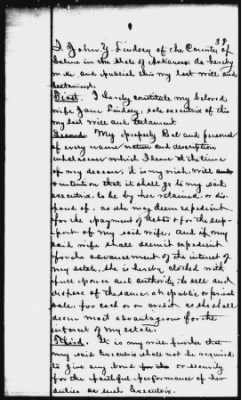 38
I, John Y. Lindsey of the County of
Saline in the State of Arkansas do hereby
make and publish this my last will and
testament.
First. I hereby constitute my beloved
wife Jane Lindsey, sole executrix of this
my last will and testament
Second My property Real and personal
of every name nature and description
whatsoever which I leave at the time
of my decease, it is my wish, will and
intention that it shall go to my said
executrix, to be by her retained, or dis-
posed of, as she may deem expedient
for the payment of debts & for the sup-
port of my said wife, and if my
said wife shall deem it expedient
for the advancement of the interest of
my estate, she is hereby clothed with
full power and authority, to sell and
dispose of the same, at public or private
sale, for cash or on credit as she shall
deem most advantageous for the
interest of my estate.
Third. It is my will further that
my said Executrix shall not be required
to give any bond or security
for the faithful performance of her
duties as such Executrix.